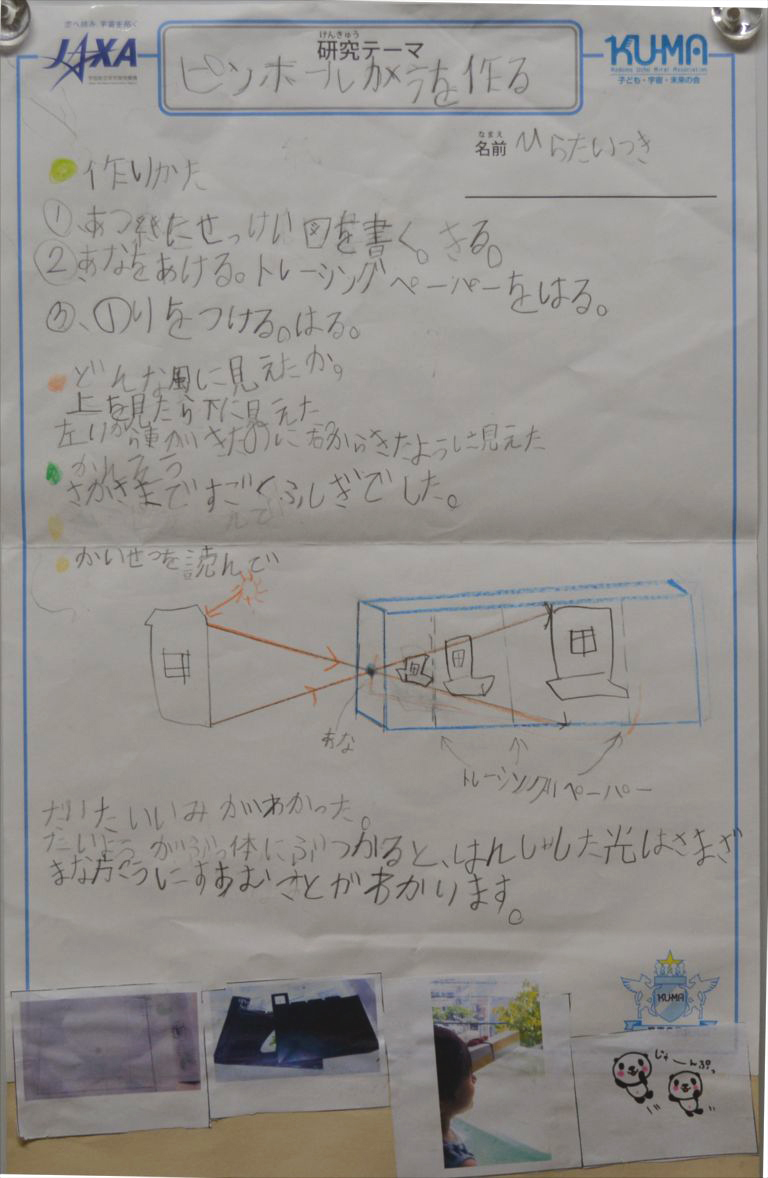 空へ挑み 宇宙を拓く
JAXA
けんきゅう
研究テーマ
ピンホールカメラを作る
KU-MA
Kodomo Uchu Mirai Association
子ども・宇宙・未来の会
なまえ
名前 ひらたいつき
作りかた
① あつ紙にせっけい図を書く。きる。
② あなをあける。トレーシングペーパーをはる。
③、のりをつける。はる。
どんな風に見えたか。
上を見たら下に見えた
左りから車がきたのに右からきたように見えた
かんそう
さかさまですごくふしぎでした。
かいせつを読んで
あな
トレーシングペーパー
だいたいいみがわかった。
たいようがぶっ体にぶつかると、はんしゃした光はさまざ
まな方こうにすすむことがわかります。
KU-MA
じゃーんぷっ